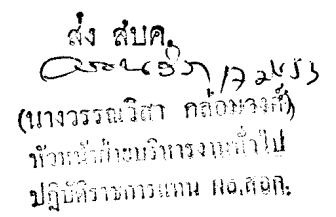 ส่ง สบค.
(นางวรรณวิสา กล่อมวงศ์)
หัวหน้าฝ่ายบริหารงานทั่วไป
ปฏิบัติราชการแทน ผอ.สอก.